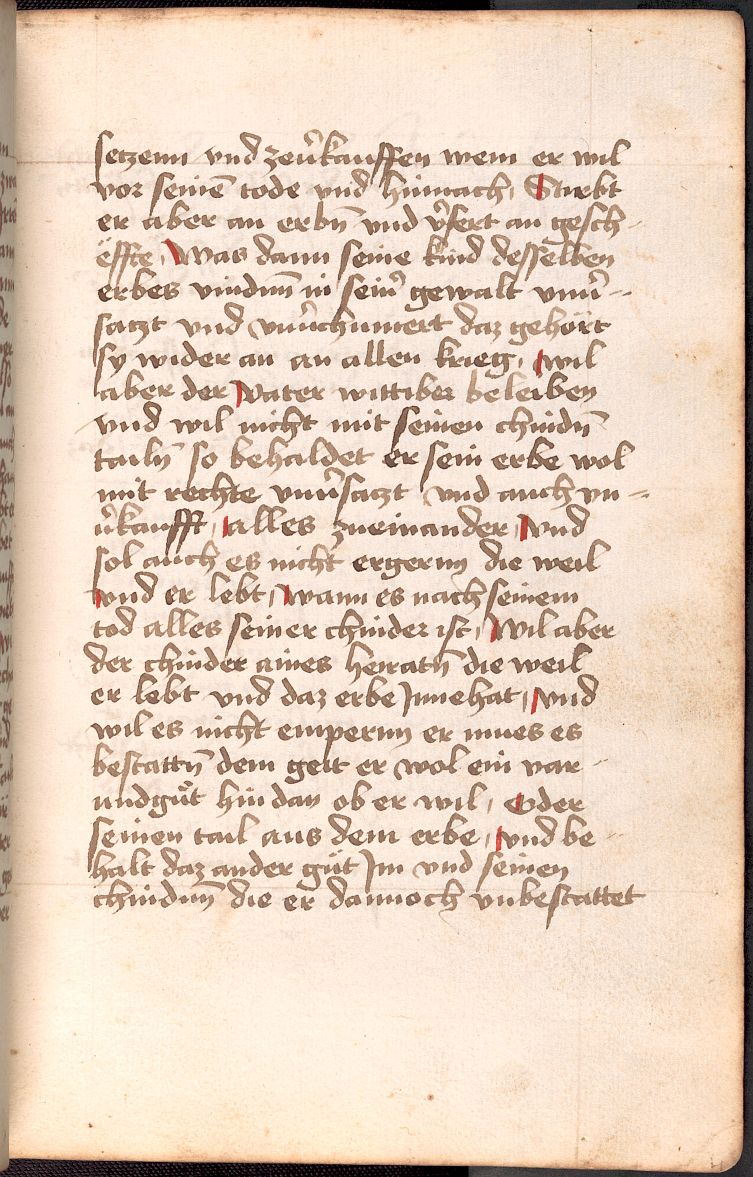 setzenn vnd zeu̓kauffen wem er wil
vor seinē tode vnd hinnach, Stirbt
er aber an erbn̄ vnd v̓fert an gesch-
èffte, Was dann seine kind desselben
erbes vindnn̄ in sein̓ gewalt vnu̓-
satzt vnd vnu̓chumert daz gehört
sy wider an an allen krieg, wil
aber der vater wittiber beleiben
vnd wil nicht mit seinen chindn̄
tailn̄ so behaldet er sein erbe wol
mit rechte vnu̓satzt vnd auch vn-
u̓kaufft, alles zueinander, vnd
sol auch es nicht ergernn die weil
vnd er lebt, wann es nach seinem
tod alles seiner chinder ist, Wil aber
der chinder aines heiratn̄ die weil
er lebt vnd daz erbe Innehat, vnd
wil es nicht empernn er mues es
bestattn̄ dem geit er wol ein var-
undgůt hin dan ob er wil, Oder
seinen tail aus dem erbe, vnd be-
halt daz ander gůt Im vnd seinen
chindnn̄ die er dannoch vnbestattet